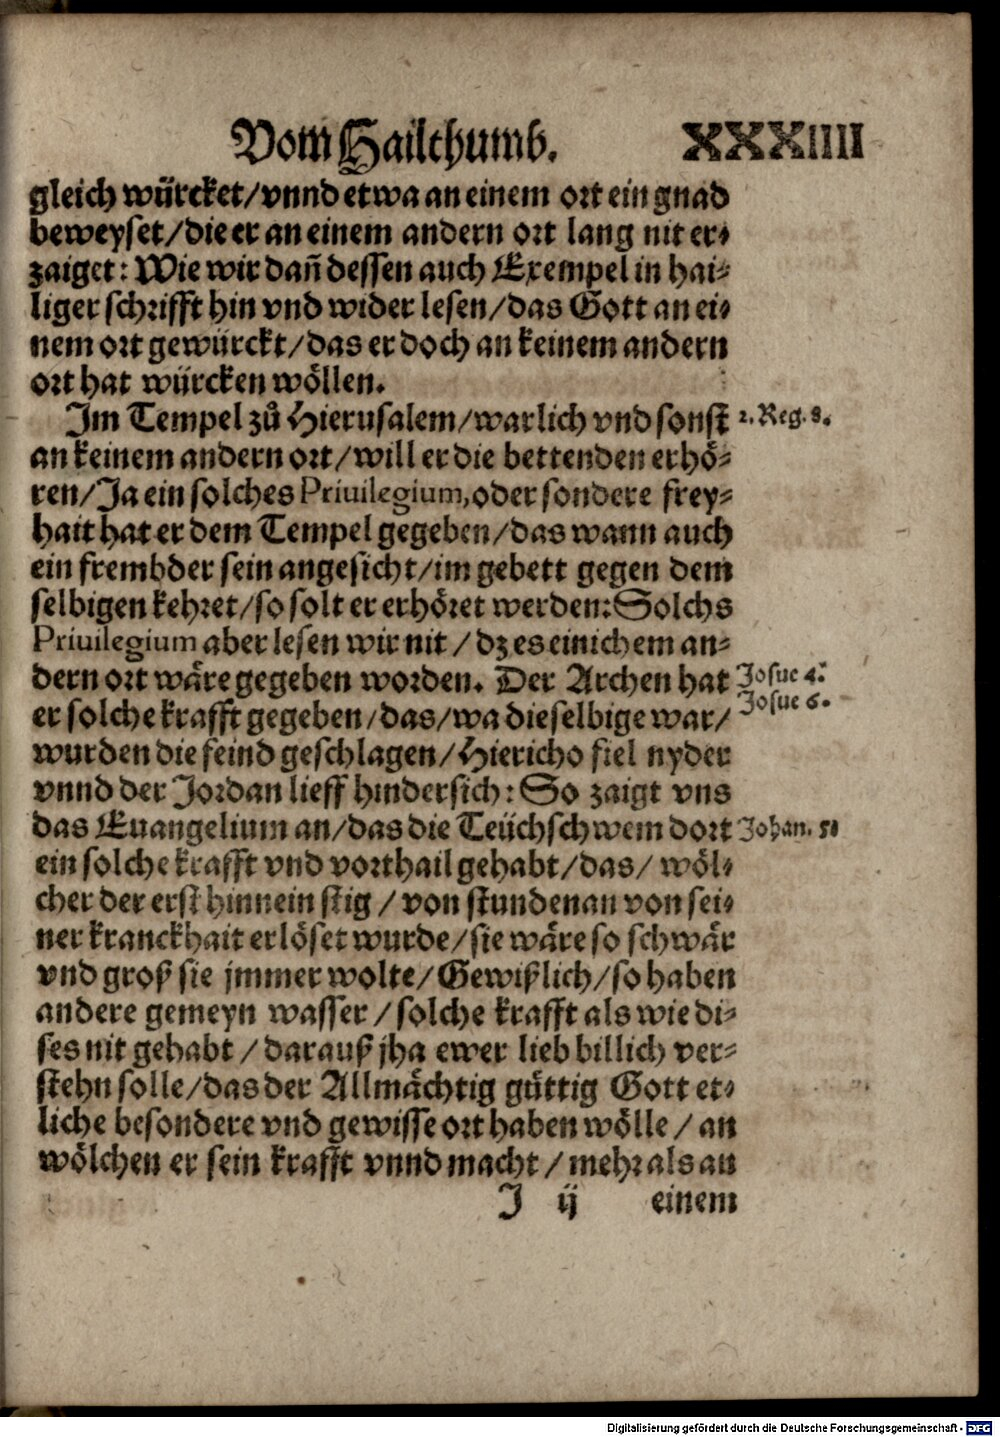 Vom Hailthumb. XXXIIII
gleich würcket/vnnd etwa an einem ort ein gnad
beweyset/die er an einem andern ort lang nit er⸗
zaiget: Wie wir dañ dessen auch Exempel in hai⸗
liger schrifft hin vnd wider lesen/das Gott an ei⸗
nem ort gewürckt/das er doch an keinem andern
ort hat würcken wöllen.
Im Tempel zů Hierusalem/warlich vnd sonst
2. Reg. 8.
an keinem andern ort/will er die bettenden erhö⸗
ren/Ja ein solches Priuilegium, oder sondere frey⸗
hait hat er dem Tempel gegeben/das wann auch
ein frembder sein angesicht/im gebett gegen dem
selbigen kehret/so solt er erhöret werden: Solchs
Priuilegium aber lesen wir nit/dz es einichem an⸗
dern ort wäre gegeben worden. Der Archen hat
Josue 4.
er solche krafft gegeben/das/wa dieselbige war/
Josue 6.
wurden die feind geschlagen/Hiericho fiel nyder
vnnd der Jordan lieff hindersich: So zaigt vns
das Euangelium an/das die Teüchschwem dort
Johan. 5.
ein solche krafft vnd vorthail gehabt/das/wöl⸗
cher der erst hinnein stig/von stundenan von sei⸗
ner kranckhait erlöset wurde/sie wäre so schwär
vnd groß sie jmmer wolte/Gewißlich/so haben
andere gemeyn wasser/solche krafft als wie di⸗
ses nit gehabt/darauß jha ewer lieb billich ver⸗
stehn solle/das der Allmächtig güttig Gott et⸗
liche besondere vnd gewisse ort haben wölle/an
wölchen er sein krafft vnnd macht/mehr als an
J ij einem
Digitalisierung gefördert durch die Deutsche Forschungsgemeinschaft - DFG